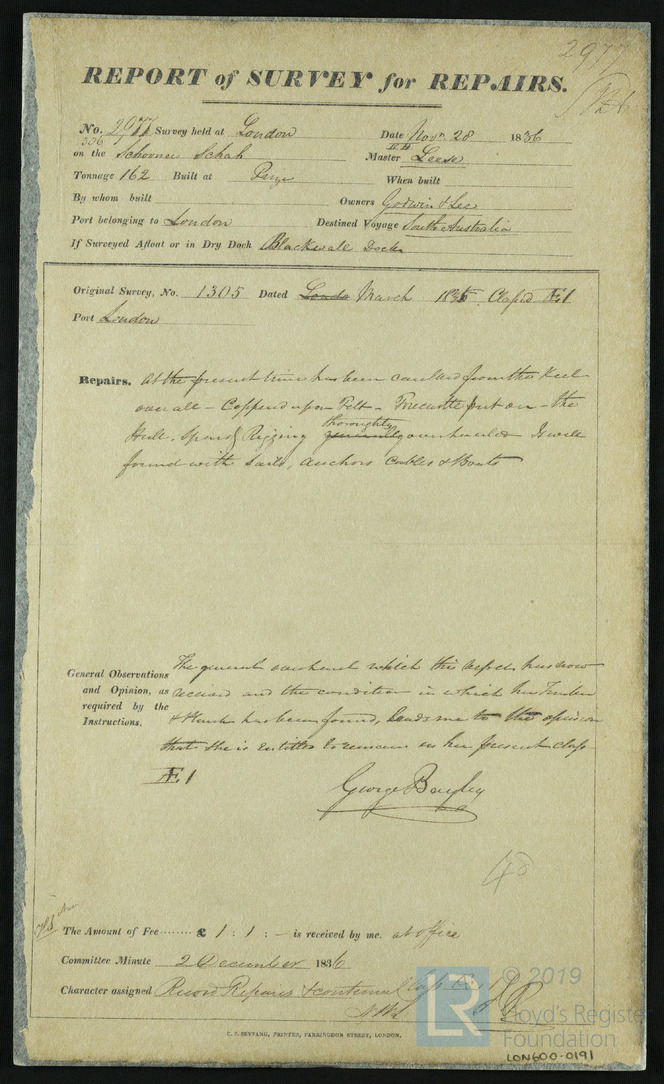 2977
REPORT of SURVEY for REPAIRS.
No. 2977 Survey held at London Date Novr 28 1836
306
on the Schooner Schah Master Leese
Tonnage 162 Built at When built
By whom built Owners Godwin & Lee
Port belonging to London Destined Voyage South Australia
If Surveyed Afloat or in Dry Dock Blackwall Dock
Original Survey, No. 1305 Dated March 183 Classed Æ1
Port London
Repairs. At the present time has been caulked from the Keel
over all - Coppered upon Felt - Forecastle put on - the
thoroughly
Hull, Spars & Rigging generally overhauled Is well
found with Sails, Anchors Cables & Boats
The general overhaul which this vessel has now
General Observations
and Opinion, as received and the condition in which her Timber
required by the
Instructions. & Plank has been found, leads me to the opinion
that she is entitled to remain in her present class
Æ1
George Bayley
The Amount of Fee ........ £ 1 : 1 : - is received by me. at office
Committee Minute 2 December 1836
Character assigned Record Repairs & continued Class Æ 1
C. F. SEYFANG, PRINTER, FARRINGDON STREET, LONDON.
LR
© 2019
Lloyd's Register
Foundation
LON600-0191